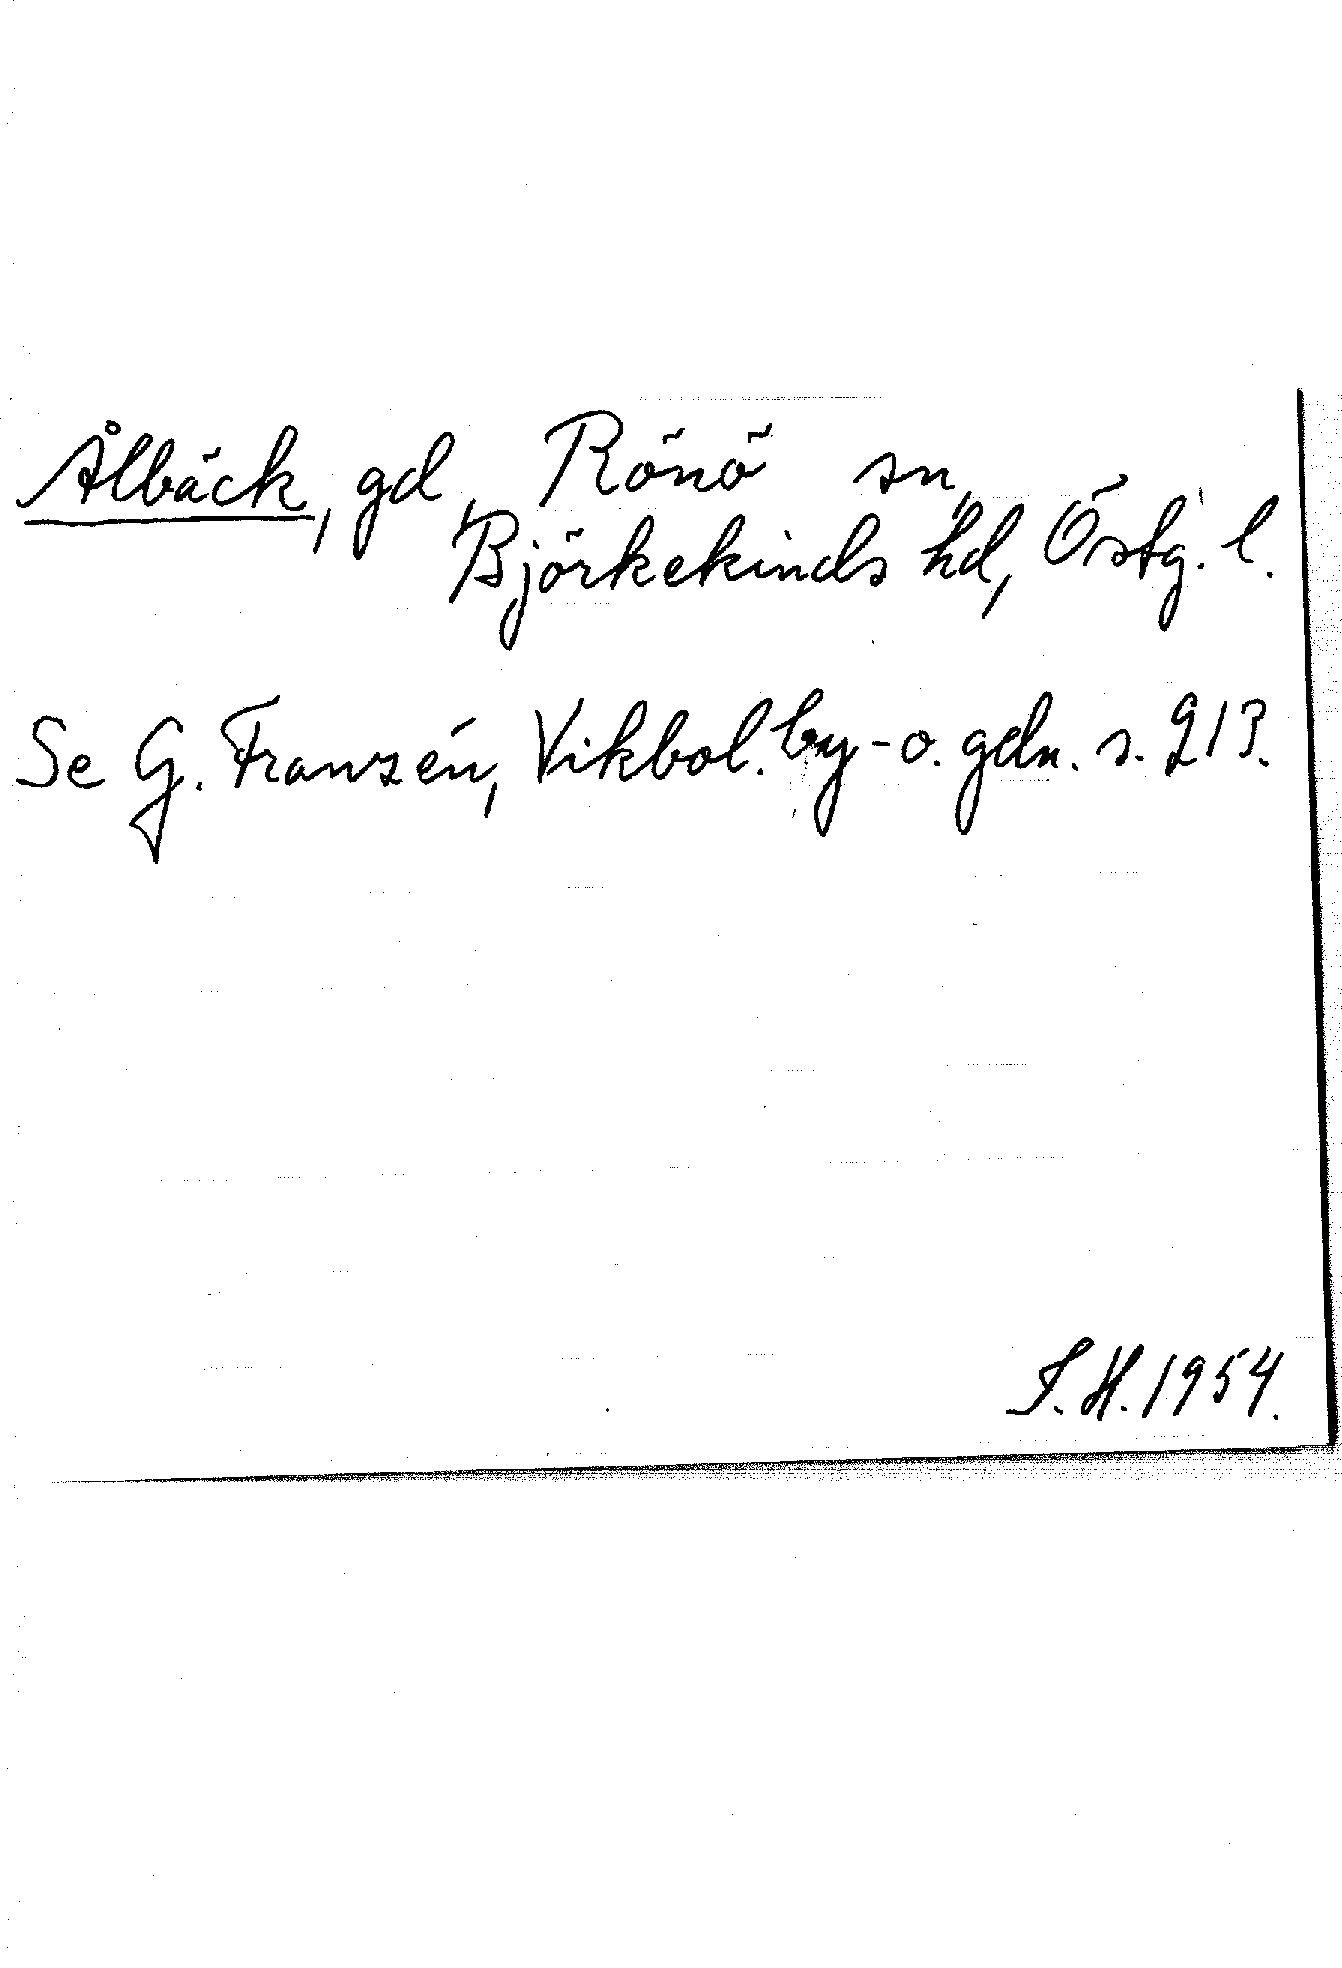 Ålbäck, gd, Rönö sn,
Björkekinds hd, Östg. l.
Se G. Franzén, Vikbol. by- o. gdn. s. 213.
S. H. 1954.